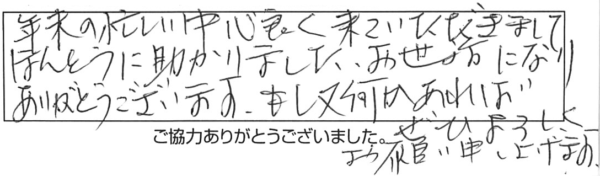 年末の忙しい中心良く来ていただきまして
ほんとうに助かりました、お世話になり
ありがとうございます。もし又何かあれば
ぜひよろしく
お願い申し上げます。
ご協力ありがとうございました。